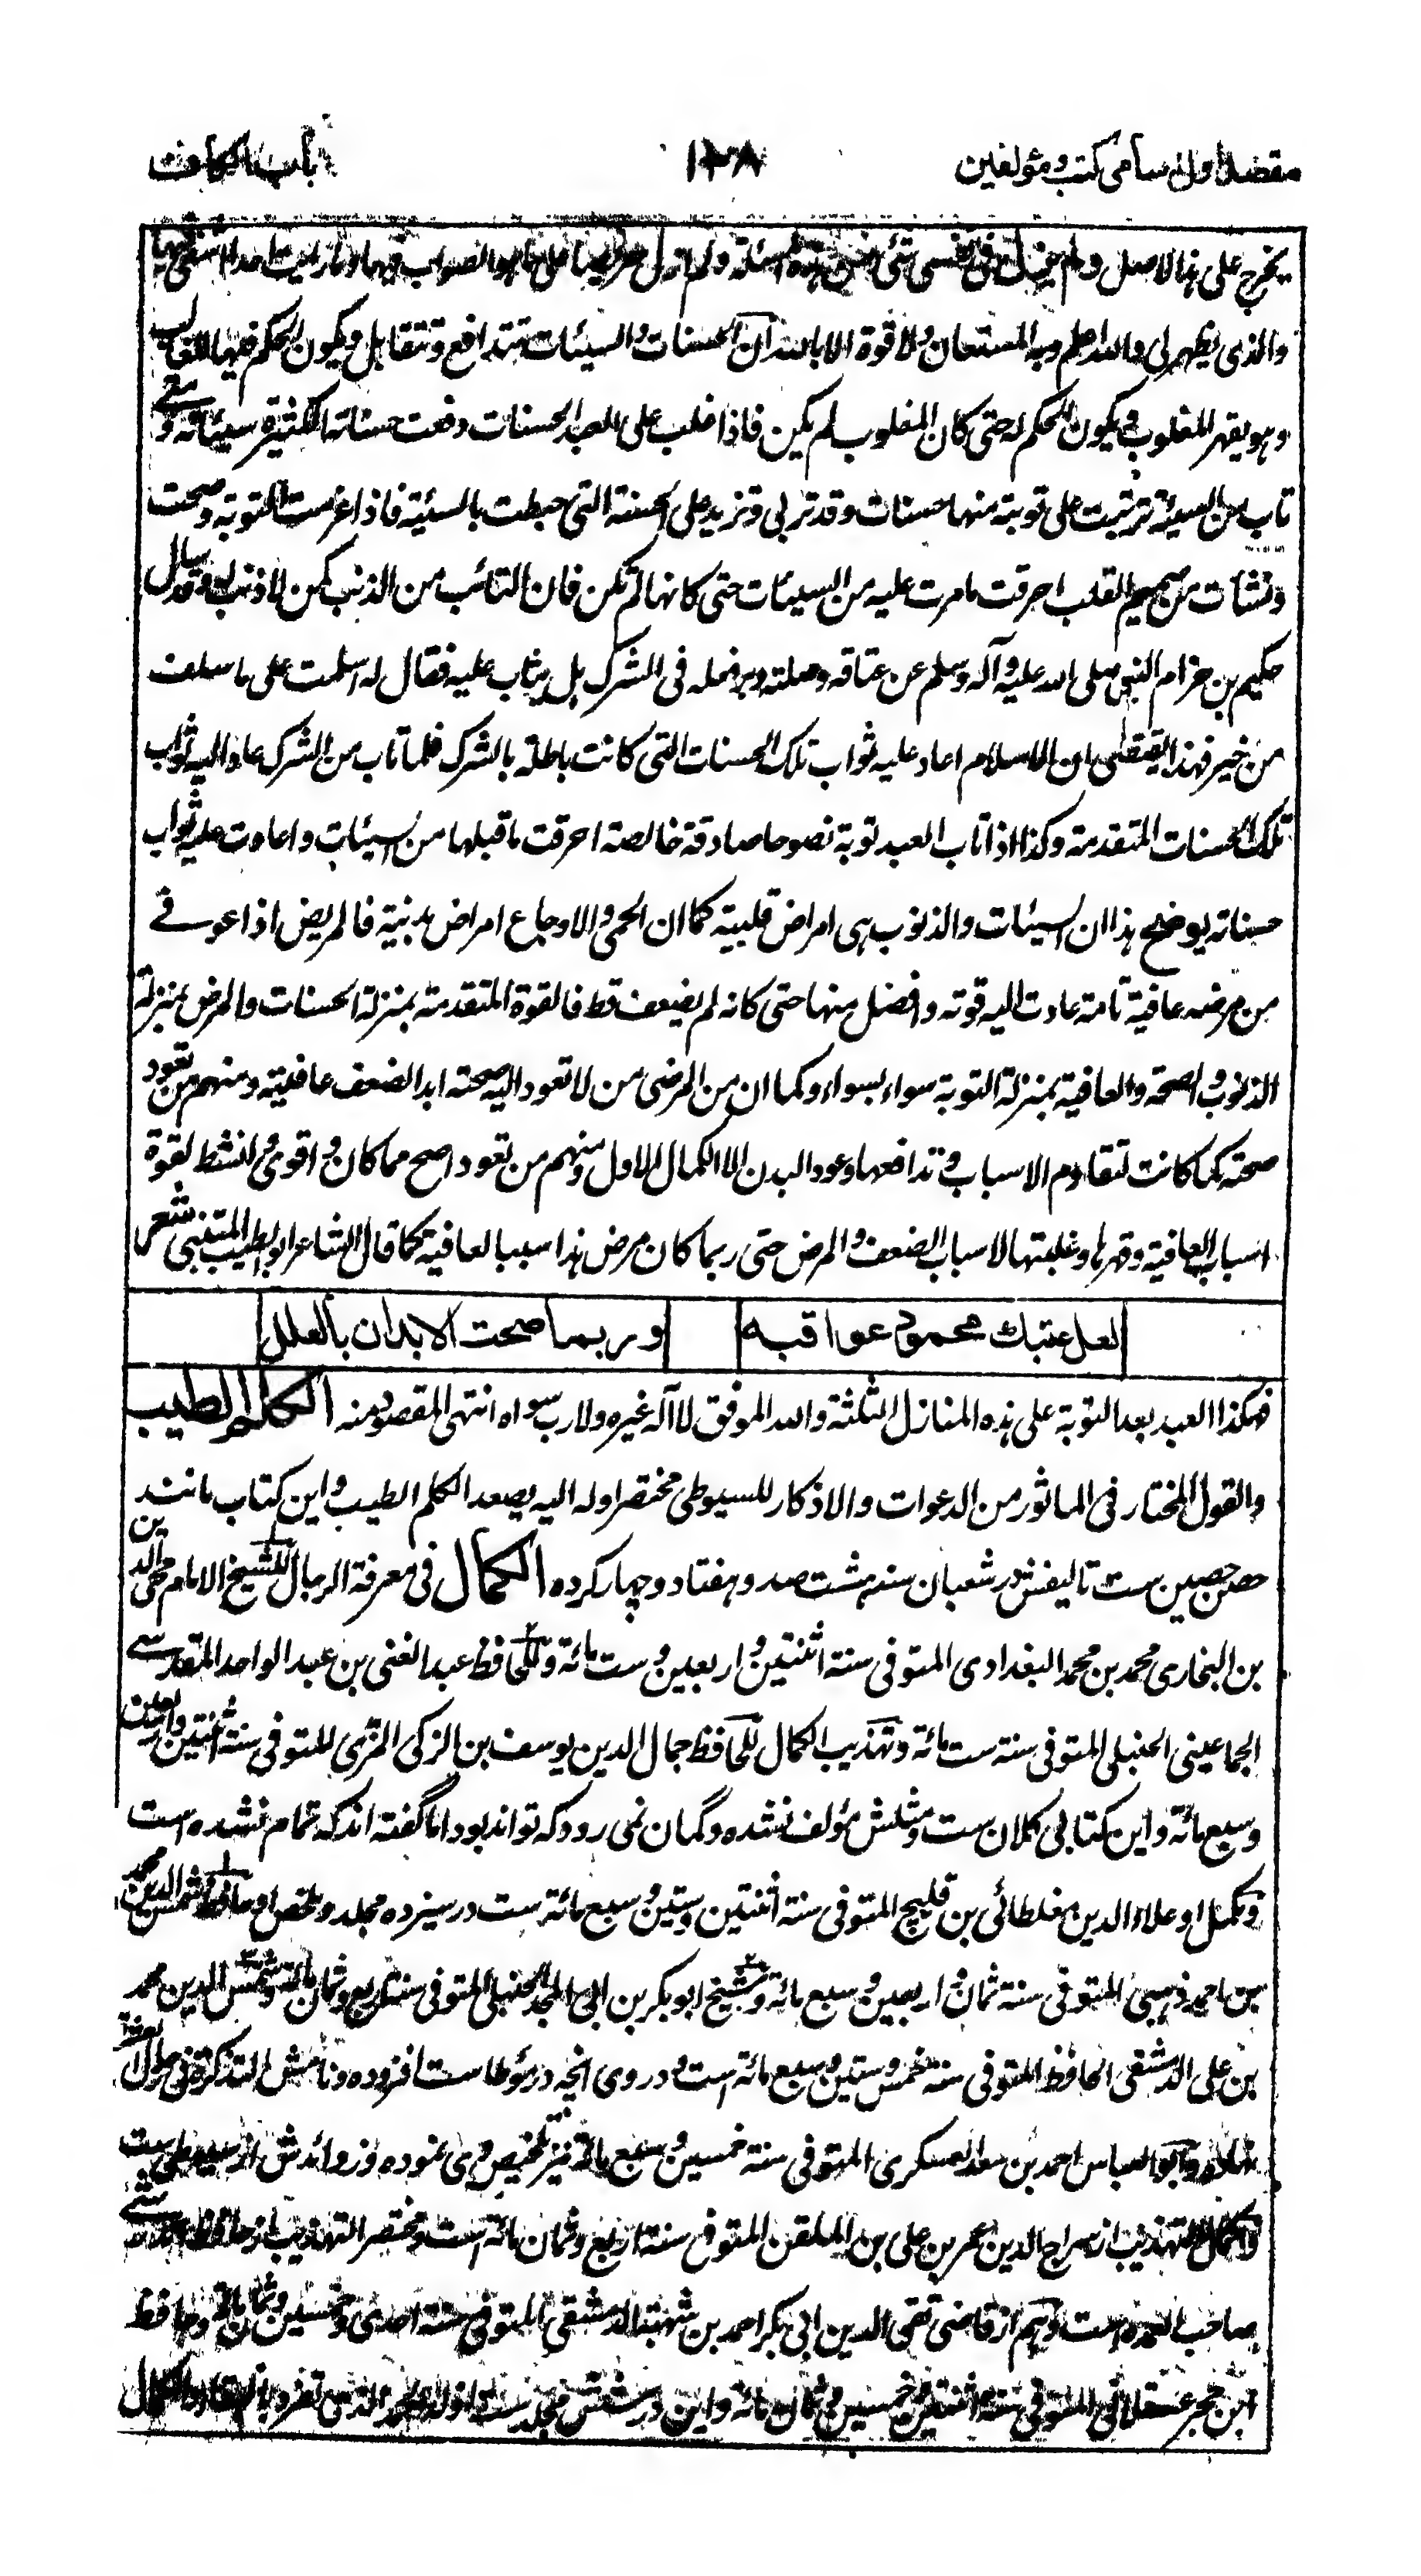 مقصد اول در اسامی کتب و مؤلفین ۱۲۸ باب الکاف
یخرج علی هذا الاصل ولم یزل فی نفسی شئ من هذه المسئلة ولم ازل حریصا علی الصواب فیها وما رأیت احدا شفی فیها
والذی یظهر لی والله اعلم وبه المستعان ولا قوة الا بالله ان الحسنات والسیئات تتدافع وتتقابل ویکون الحکم فیها للغالب
وهو یقهر المغلوب ویکون الحکم له حتی کان المغلوب لم یکن فاذا غلب علی العبد الحسنات دفعت حسناته الکثیرة سیئاته ومتی
تاب من السیئة ترتبت علی توبته منها حسنات وقد تربی وتزید علی الحسنة التی حبطت بالسیئة فاذا عزمت التوبة وصحت
ونشأت من صمیم القلب احرقت ما مرت علیه من السیئات حتی کانها لم تکن فان التائب من الذنب کمن لا ذنب له وقد سال
حکیم بن حزام النبی صلی الله علیه وآله وسلم عن عتاقه وصلته وبر فعله فی الشرک بل یثاب علیه فقال له اسلمت علی ما سلف
من خیر فهذا یقتضی ان الاسلام اعاد علیه ثواب تلک الحسنات التی کانت باطلة بالشرک فلما تاب من الشرک عاد الیه ثواب
تلک الحسنات المتقدمة وکذا اذا تاب العبد توبة نصوحا صادقة خالصة احرقت ما قبلها من السیئات واعادت علیه ثواب
حسناته یوضح هذا ان السیئات والذنوب هی امراض قلبیة کما ان الحمی والاوجاع امراض بدنیة فالمریض اذا عوفے
من مرضه عافیة تامة عادت الیه قوته وافضل منها حتی کانه لم یضعف قط فالقوة المتقدمة بمنزلة الحسنات والمرض بمنزلة
الذنوب والصحة والعافیة بمنزلة التوبة سواء بسواء وکما ان من المرضی من لا تعود الیه صحته ابدا لضعف عافیته ومنهم من تعود
صحته کما کانت لتقاوم الاسباب وتدافعها وعود البدن الا الکمال الاول ومنهم من تعود اصح مما کان واقوی وانشط لقوة
اسباب العافیة وقهرها وغلبتها لاسباب الضعف والمرض حتی ربما کان مرض هذا سببا لعافیة کما قال الشاعر ابوالطیب المتنبی شعر
لعل عتبك محمود عواقبه وربما صحت الابدان بالعلل
فهکذا العبد بعد التوبة علی هذه المنازل الثلثة والله الموفق لا آله غیره ولا رب سواه انتهی المقصود منه الکلم الطیب
والقول المختار فی الماثور من الدعوات والاذکار للسیوطی مختصر اوله الیه یصعد الکلم الطیب واین کتاب مانند
حصن حصین ست تالیفش در شعبان سنه هشت صد و هفتاد و چهار کرده الکمال فی معرفة الرجال للشیخ الامام محب الدین
بن البخاری محمد بن محمد البغدادی المتوفی سنة اثنتین و اربعین و ست مائة وللحافظ عبد الغنی بن عبد الواحد المقدسے
الجماعینی الحنبلی المتوفی سنة ست مائة وتهذیب الکمال للحافظ جمال الدین یوسف بن الزکی المزی المتوفی سنة اثنتین واربعین
وسبع مائة واین کتابی کلان ست و مثلش مؤلف نشده وگمان نمی رود که تواند بود اما گفته اند که تمام نشده است
ومکمل او علاء الدین مغلطائی بن قلیج المتوفی سنة اثنتین وستین وسبع مائة ست در سیزده مجلد وملخص او حافظ شمس الدین محمد
بن احمد ذهبی المتوفی سنة ثمان و اربعین و سبع مائة وشیخ ابو بکر بن ابی المجد الحنبلی المتوفی سنة اربع وثمان مائة وشمس الدین محمد
بن علی الدمشقی الحافظ المتوفی سنة خمس وستین وسبع مائة است و در وی انچه در مؤطا ست افزوده ونامش التذکرة فی رجال العشرة
نهاده وابو العباس احمد بن سعد العسکری المتوفی سنة خمسین و سبع مائة نیز تلخیص وی نموده وزوائدش از سیوطی ست
واکمال التهذیب از سراج الدین عمر بن علی بن الملقن المتوفی سنة اربع وثمان مائة است ومختصر التهذیب از حافظ
صاحب العمده است و هم از قاضی تقی الدین ابی بکر احمد بن شهبة الدمشقی المتوفی سنة احدی وخمسین وثمان مائة وحافظ
ابن حجر عسقلانی المتوفی سنة اثنتین وخمسین وثمان مائة واین در شش مجلد ست اوله الحمد لله الذی تفرد بالبقاء والکمال